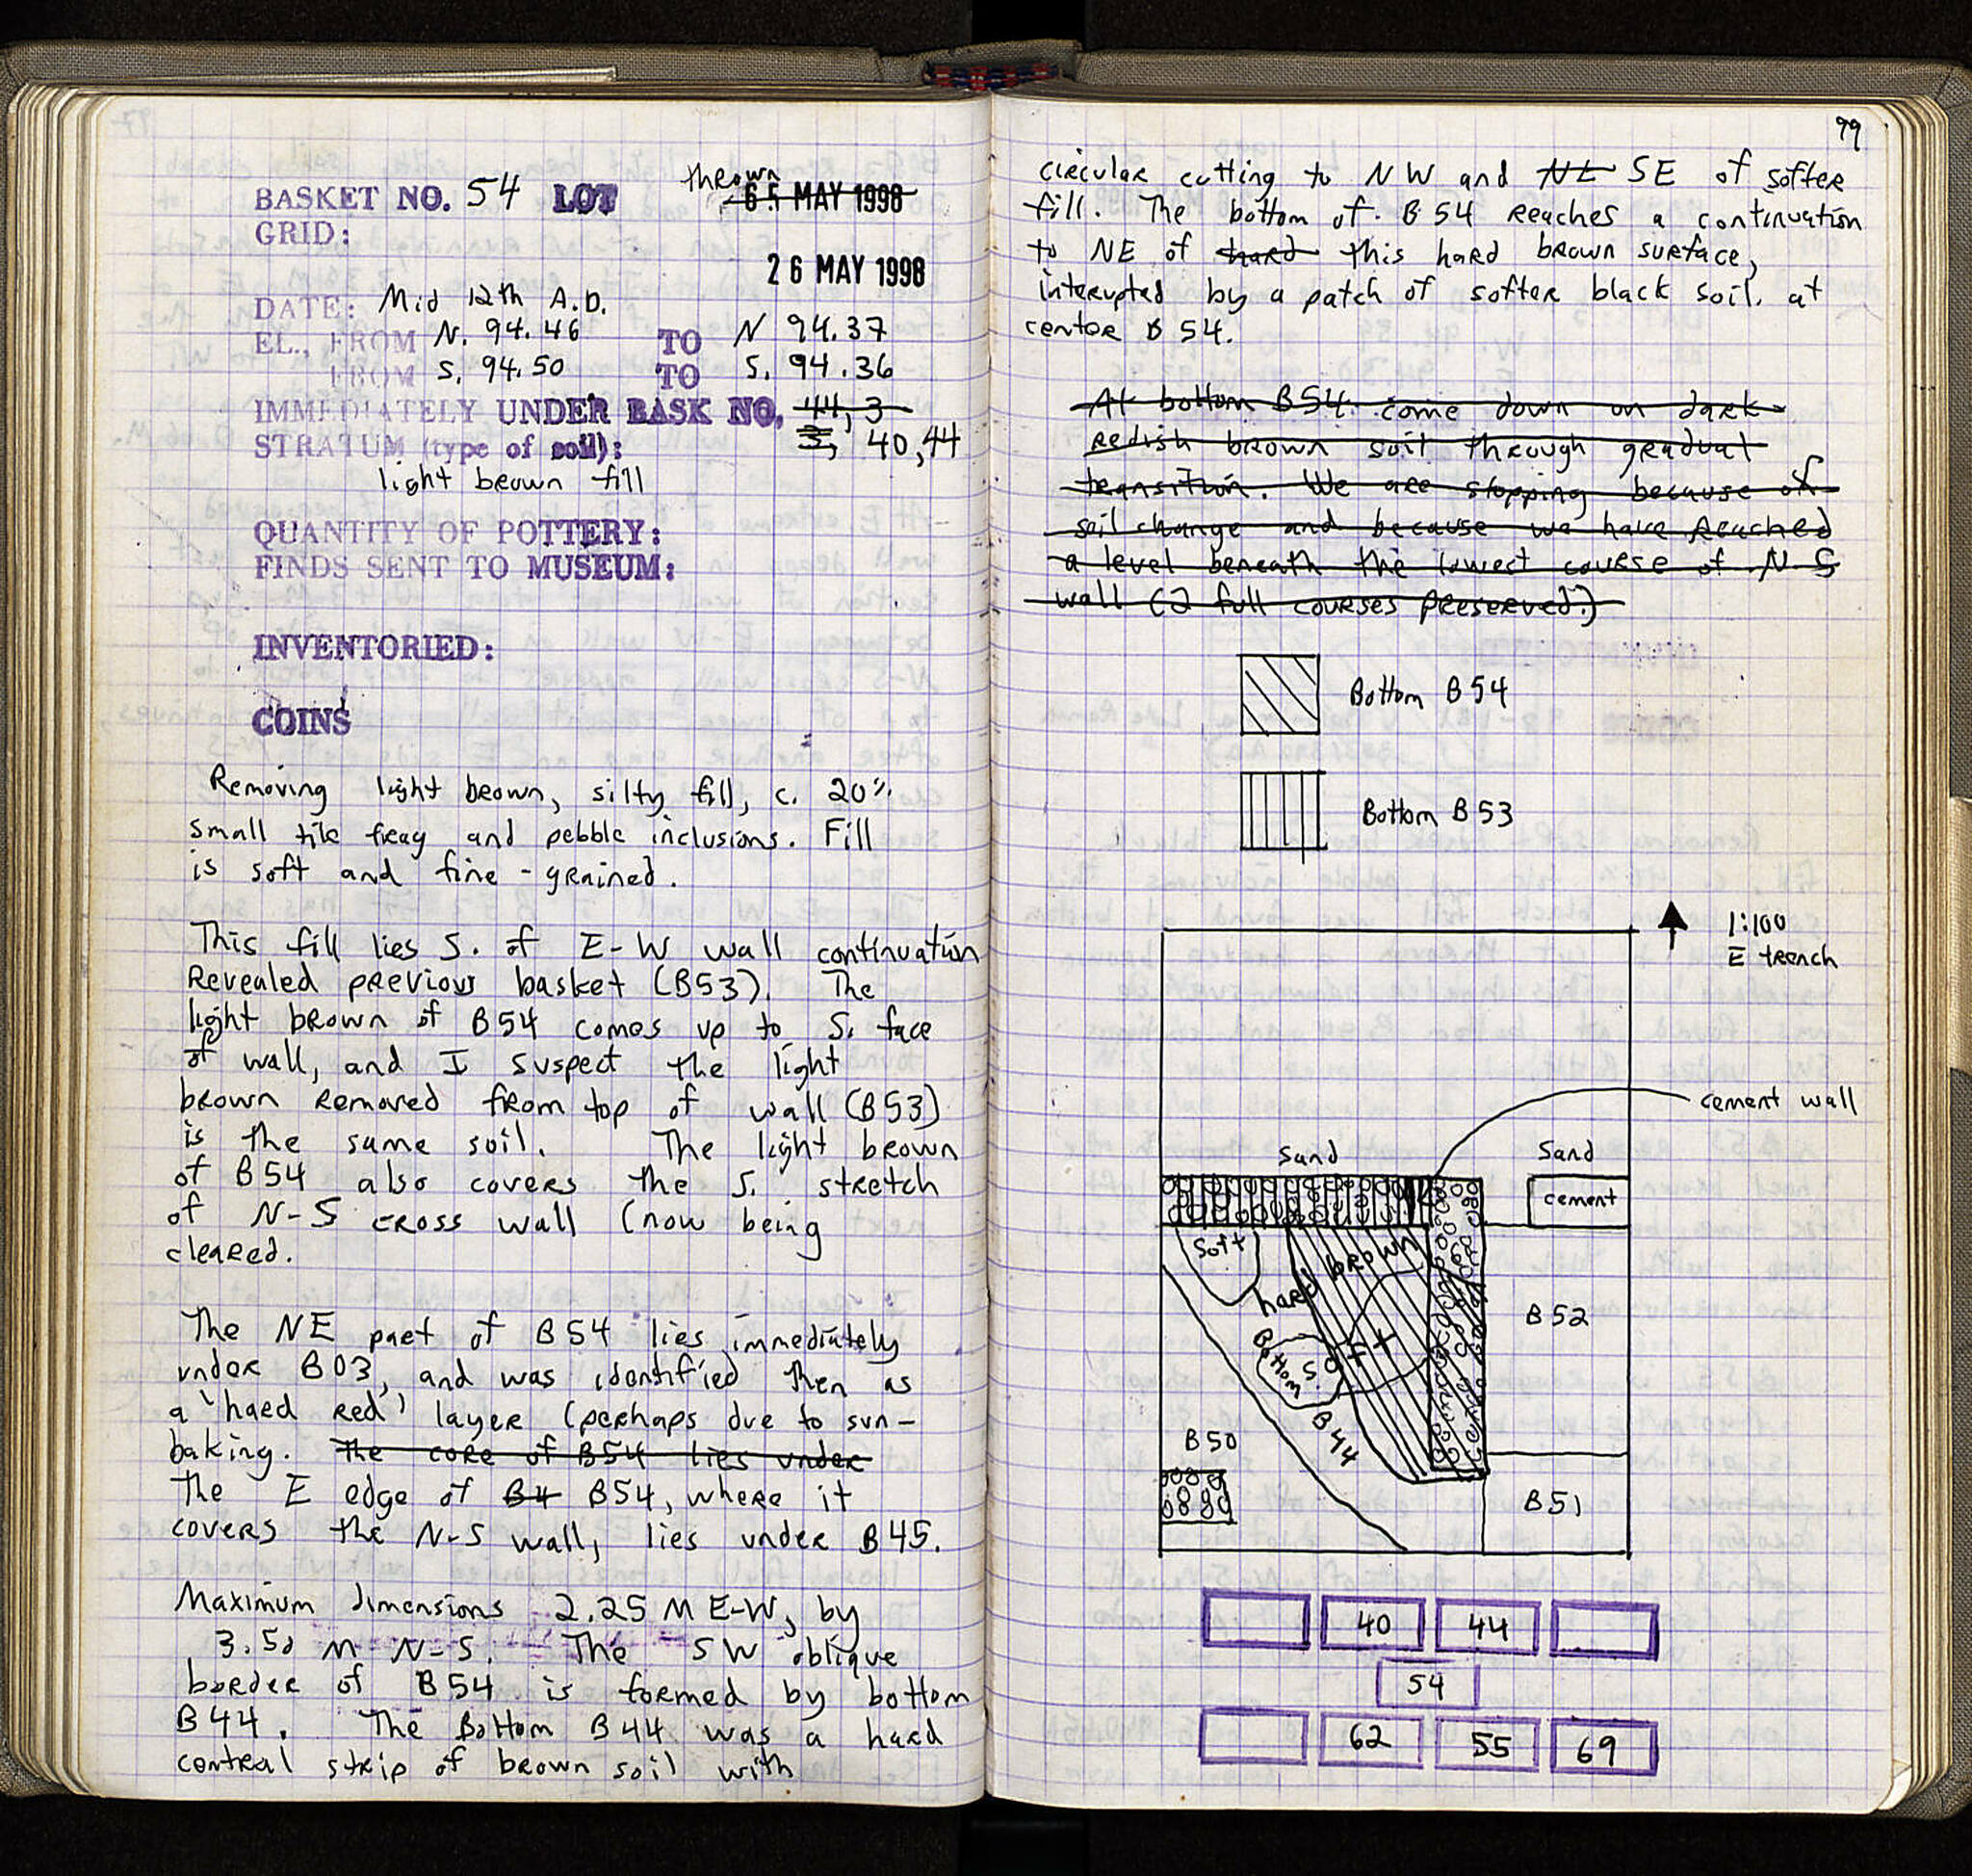 BASKET NO. 54 LOT thrown
65 MAY 1998
GRID:
26 MAY 1998
DATE: Mid 12th A.D.
EL., FROM N. 94.46 TO N 94.37
FROM S. 94.50 TO S. 94.36
IMMEDIATELY UNDER BASK NO. 44, 3
3, 40, 44
STRATUM (type of soil):
light brown fill
QUANTITY OF POTTERY:
FINDS SENT TO MUSEUM:
INVENTORIED:
COINS
Removing light brown, silty fill, c. 20%
small tile frag and pebble inclusions. Fill
is soft and fine-grained.
This fill lies S. of E-W wall continuation
Revealed previous basket (B53). The
light brown of B54 comes up to S. face
of wall, and I suspect the light
brown removed from top of wall (B53)
is the same soil. The light brown
of B54 also covers the S. stretch
of N-S cross wall (now being
cleared.
The NE part of B54 lies immediately
under B03, and was identified then as
a 'hard red' layer (perhaps due to sun-
baking. The core of B54 lies under
The E edge of B4 B54, where it
covers the N-S wall, lies under B45.
Maximum dimensions 2.25 M E-W, by
3.50 M N-S. The SW oblique
border of B54 is formed by bottom
B44. The Bottom B44 was a hard
central strip of brown soil with
99
circular cutting to NW and NE SE of softer
fill. The bottom of B54 reaches a continuation
to NE of hard this hard brown surface,
interupted by a patch of softer black soil at
center B54.
At bottom B54 come down on dark
redish brown soil through gradual
transition. We are stopping because of
soil change and because we have reached
a level beneath the lowest course of N-S
wall (2 full courses preserved.)
Bottom B54
Bottom B53
1:100
E trench
cement wall
Sand
Sand
cement
Soft
hard brown
soft
B52
Bottom
S.
B44
B50
B51
40 44
54
62 55 69